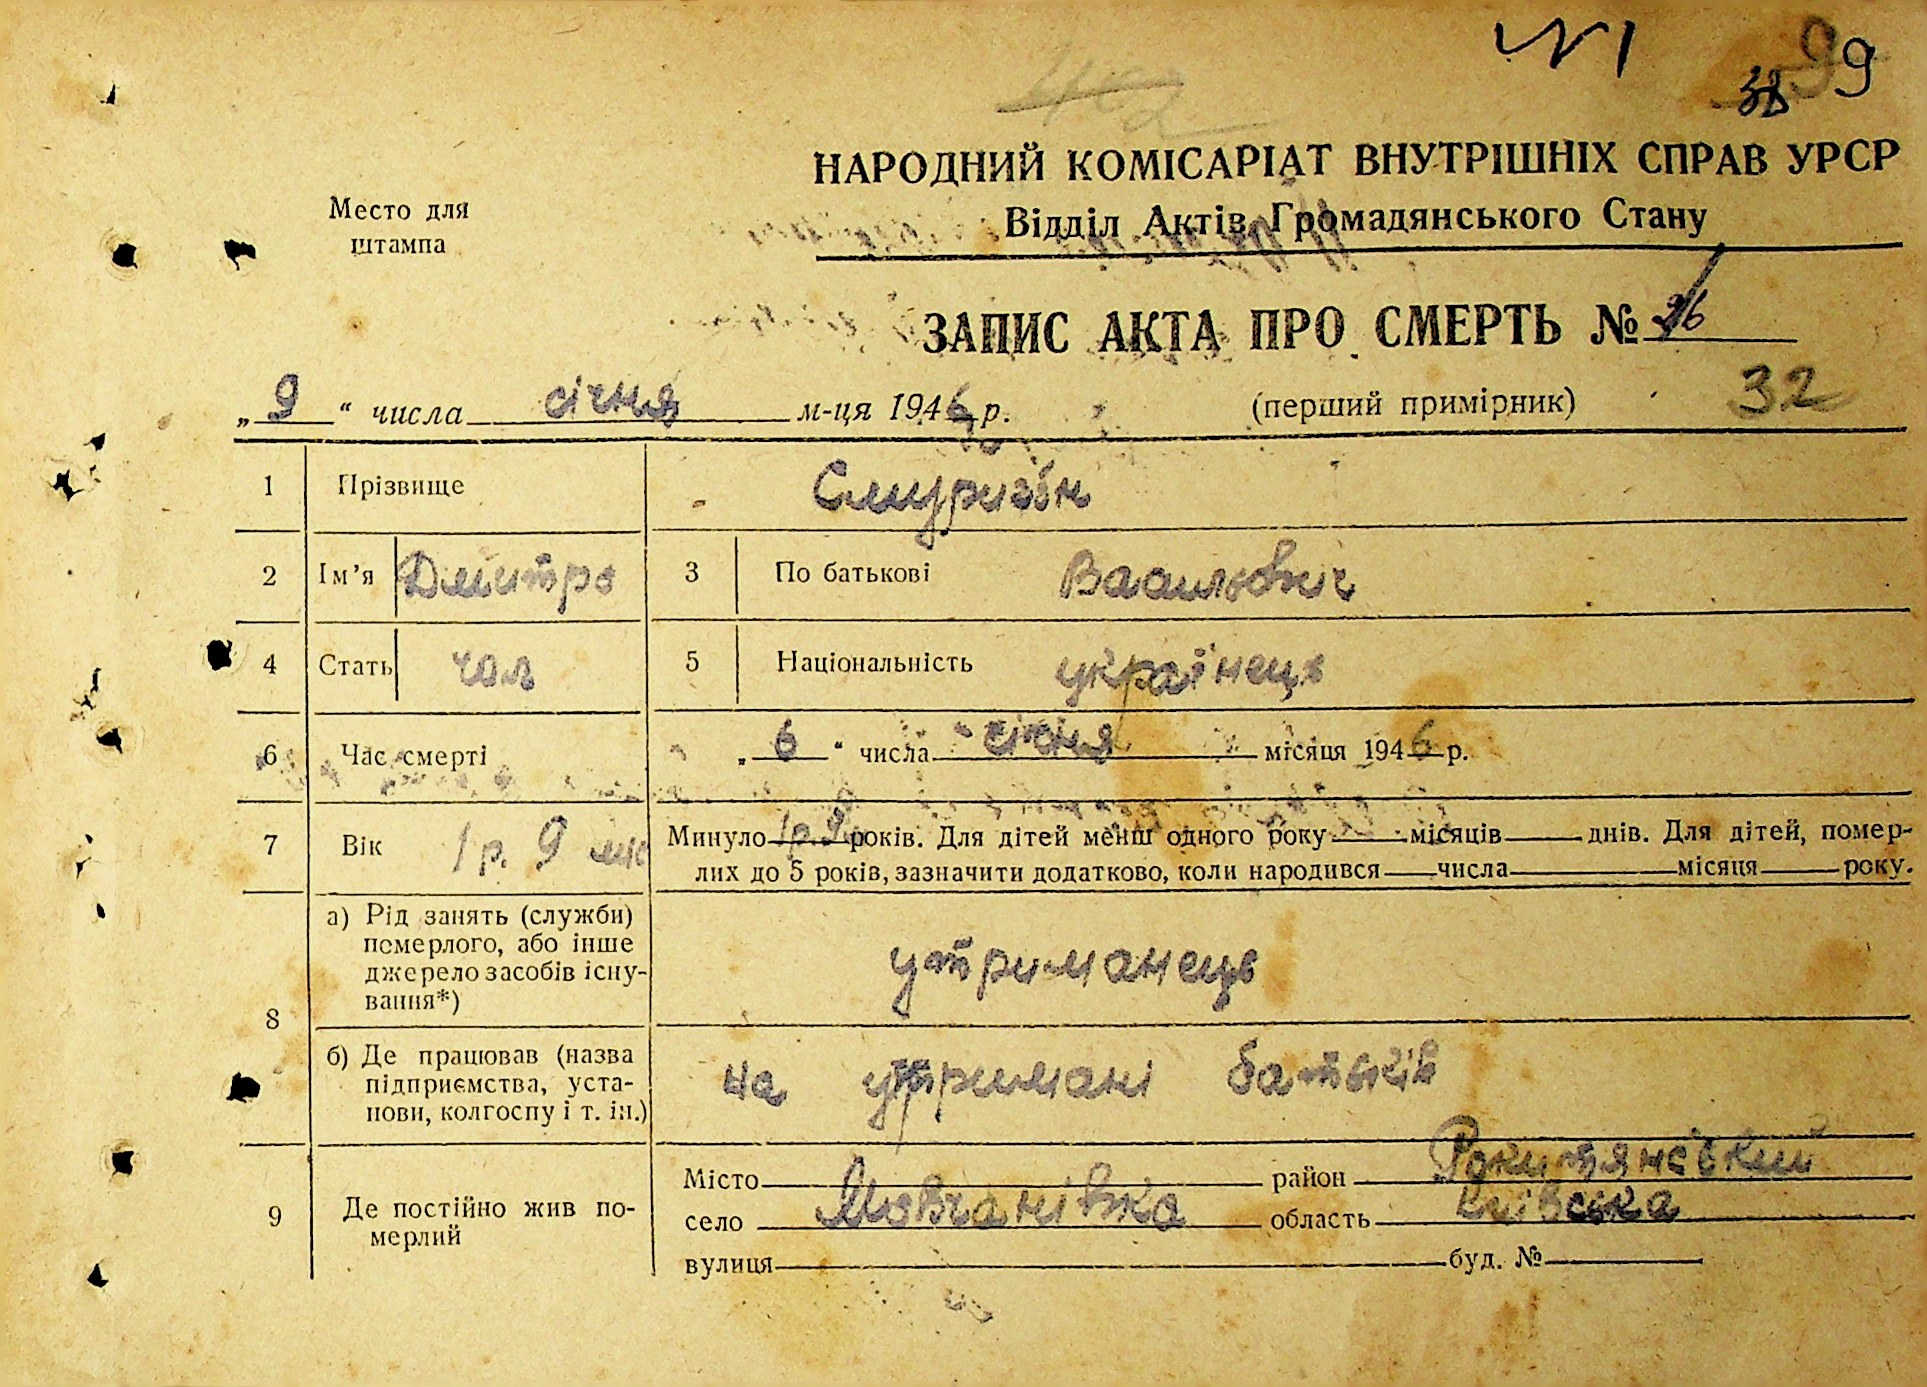 № 1
38 99
НАРОДНИЙ КОМІСАРІАТ ВНУТРІШНІХ СПРАВ УРСР
Відділ Актів Громадянського Стану
Место для
штампа
ЗАПИС АКТА ПРО СМЕРТЬ №
„ 9 “ числа січня м-ця 1946 р. (перший примірник) 32
1 Прізвище
2 Ім’я Дмитро 3 По батькові Васильович
4 Стать чол 5 Національність українець
6 Час смерті „ 6 “ числа січня місяця 1946 р.
7 Вік 1 р. 9 міс Минуло 1 р. 9 років. Для дітей менш одного року місяців днів. Для дітей, помер-
лих до 5 років, зазначити додатково, коли народився числа місяця року.
8 а) Рід занять (служби)
померлого, або інше
джерело засобів існу-
вання*)
утриманець
б) Де працював (назва
підприємства, уста-
нови, колгоспу і т. ін.)
на утримані батьків
9 Де постійно жив по-
мерлий
Місто район Рокитянський
село Мовчанівка область Київська
вулиця буд. №